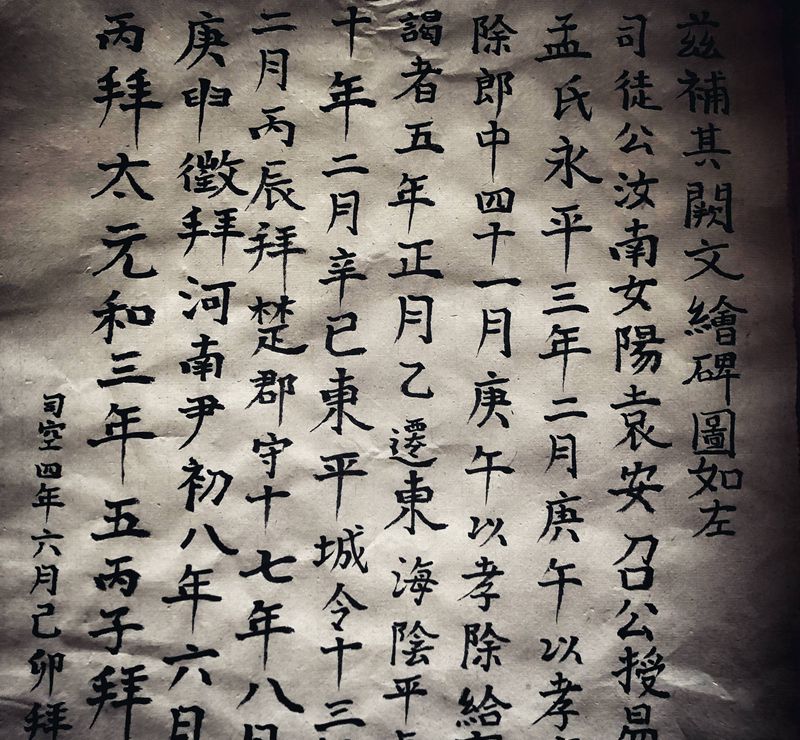 茲補其闕文繪碑圖如左
司徒公汝南女陽袁安召公授易
孟氏永平三年二月庚午以孝
除郎中四十一月庚午以孝除給
謁者五年正月乙遷東海陰平
十年二月辛巳東平城令十三
二月丙辰拜楚郡守十七年八月
庚申徵拜河南尹初八年六月
丙拜太元和三年五丙子拜
司空四年六月己卯拜